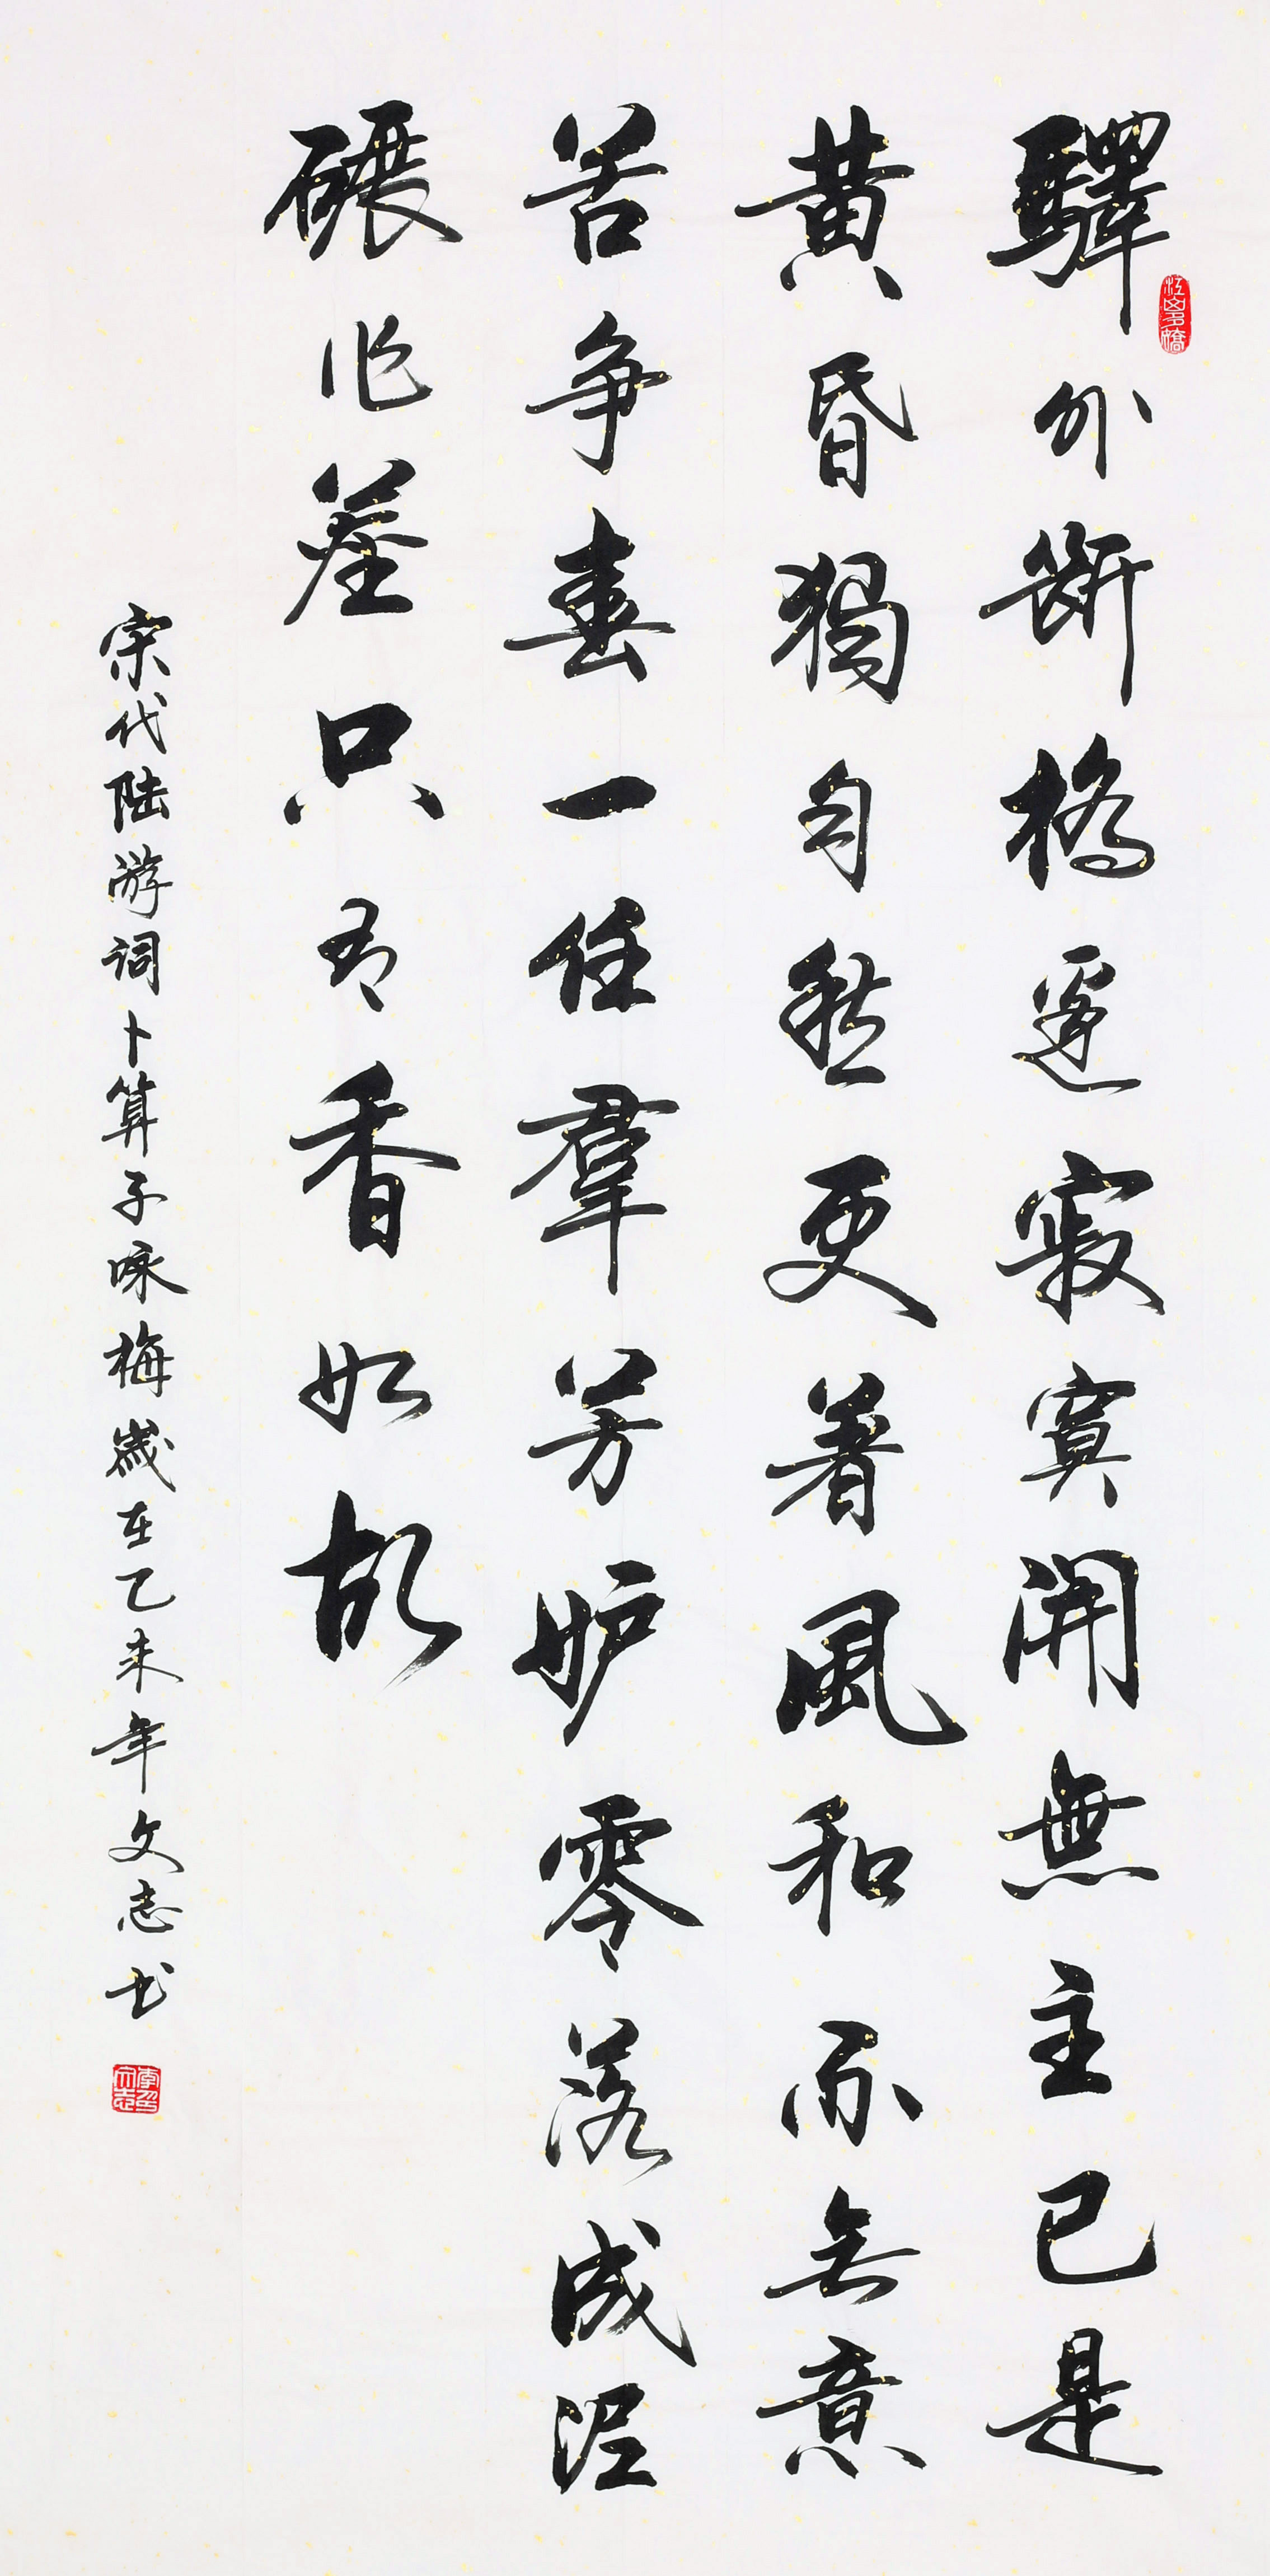 驛外断橋邊寂寞開無主已是
黄昏獨自愁更著風和雨無意
苦争春一任羣芳妒零落成泥
碾作塵只有香如故
宋代陆游词卜算子咏梅歲在乙未年文志书
江山多嬌
李文志印